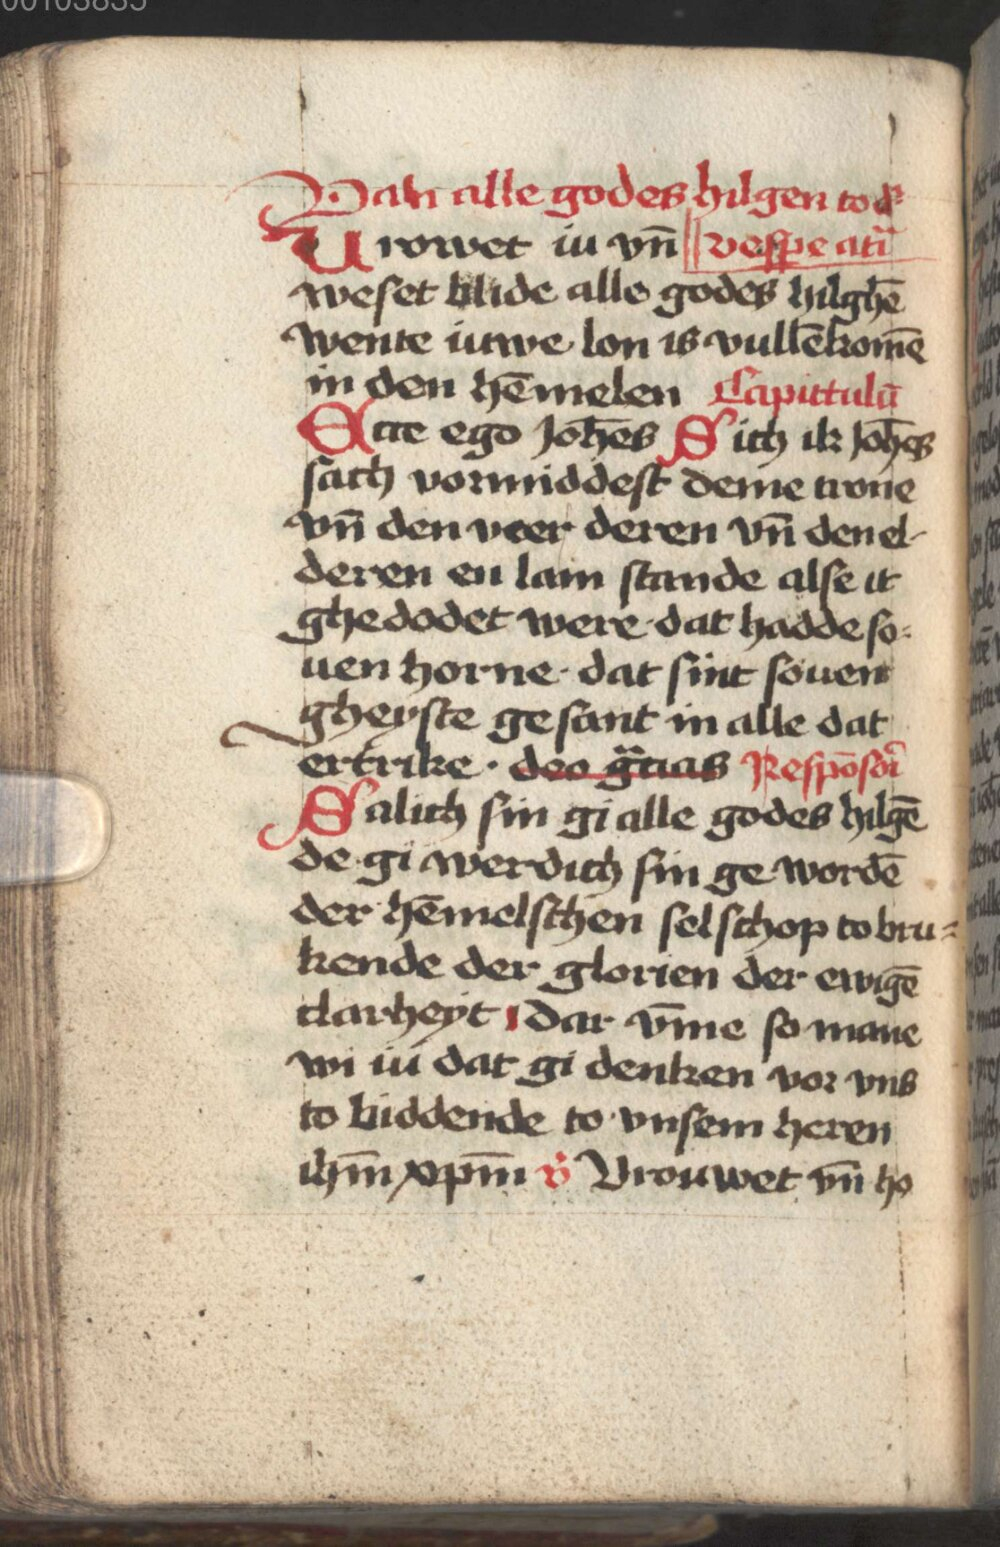 00103835
Van alle godes hilgen to dr̄
Urowet iu vn̄ || vesp̱e atī
weset blide alle godes hilghē
wente iuwe lon is vullēkomē
in den hēmelen Capittulū
Ecce ego Joh̄es Sich ik Joh̄es
sach vormiddest deme trone
vn̄ den veer deren vn̄ den el-
deren en lam stande alse it
ghedodet were · dat hadde so-
uen horne · dat sint souen
gheyste gesant in alle dat
ertrike · deo gr̄cias Respōsor̄
Salich sin gi alle godes hilgē
de gi werdich sin ge wordē
der hēmelschen selschop to bru-
kende der glorien der ewigē
clarheyt Dar v̄me so mane
wi iu dat gi denken vor vns
to biddende to vnsem heren
ihm̄ xp̄m v̄ Vrouwet vn̄ ho